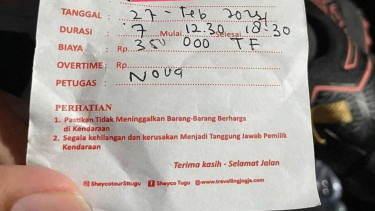 TANGGAL : 27 Feb 2024
DURASI : 7 Mulai 12.30 Selesai 18.30
BIAYA : Rp. 350 000 TF
OVERTIME : Rp.
PETUGAS : Nova
PERHATIAN
1. Pastikan Tidak Meninggalkan Barang-Barang Berharga
di Kendaraan
2. Segala kehilangan dan kerusakan Menjadi Tanggung Jawab Pemilik
Kendaraan
Terima kasih - Selamat Jalan
SheycotourStugu Sheyco Tugu @ www.travellingjogja.com